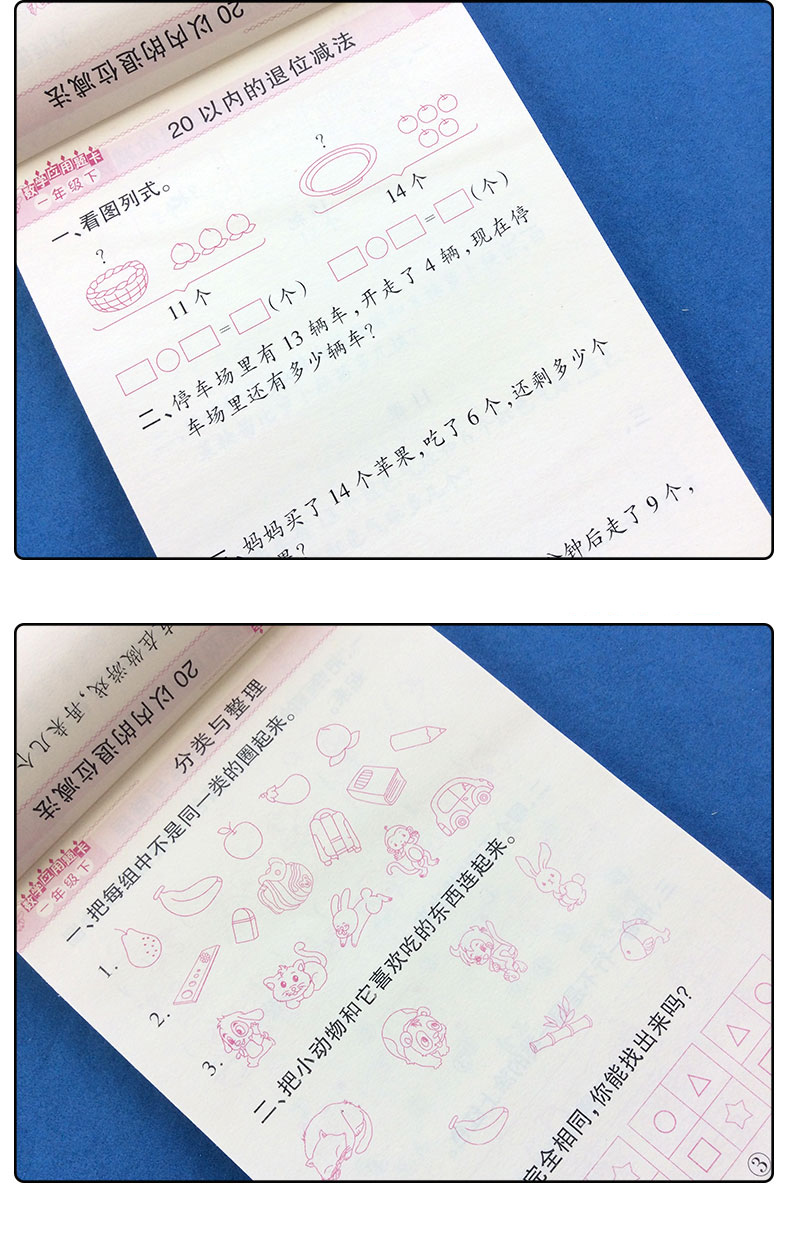 20以内的退位减法
20以内的退位减法
数学应用题卡
一年级下
一、看图列式。
?
?
14个
11个
=
(个)
=
(个)
二、停车场里有 13 辆车，开走了 4 辆，现在停
车场里还有多少辆车？
妈妈买了 14 个苹果，吃了 6 个，还剩多少个
果？
钟后走了 9 个，
在做游戏，再来几个
20以内的退位减法
分类与整理
数学应用题卡
一年级下
一、把每组中不是同一类的圈起来。
1.
2.
3.
二、把小动物和它喜欢吃的东西连起来。
完全相同，你能找出来吗？
③